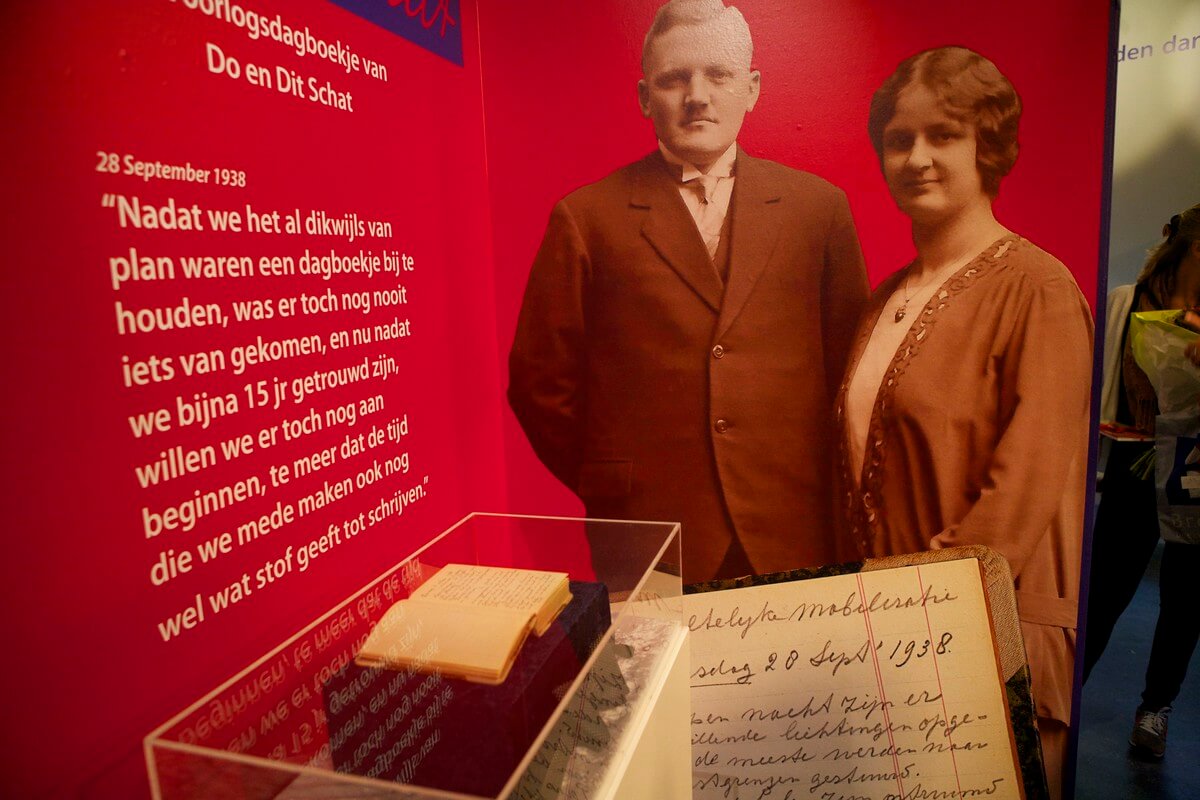 oorlogsdagboekje van
Do en Dit Schat
28 September 1938
“Nadat we het al dikwijls van
plan waren een dagboekje bij te
houden, was er toch nog nooit
iets van gekomen, en nu nadat
we bijna 15 jr getrouwd zijn,
willen we er toch nog aan
beginnen, te meer dat de tijd
die we mede maken ook nog
wel wat stof geeft tot schrijven.”
den dar
ltelyke Mobilisatie
sdag 28 Sept' 1938.
pen nacht zijn er
illende lichtingen opge-
de meeste werden naar
stgrenzen gestuurd.